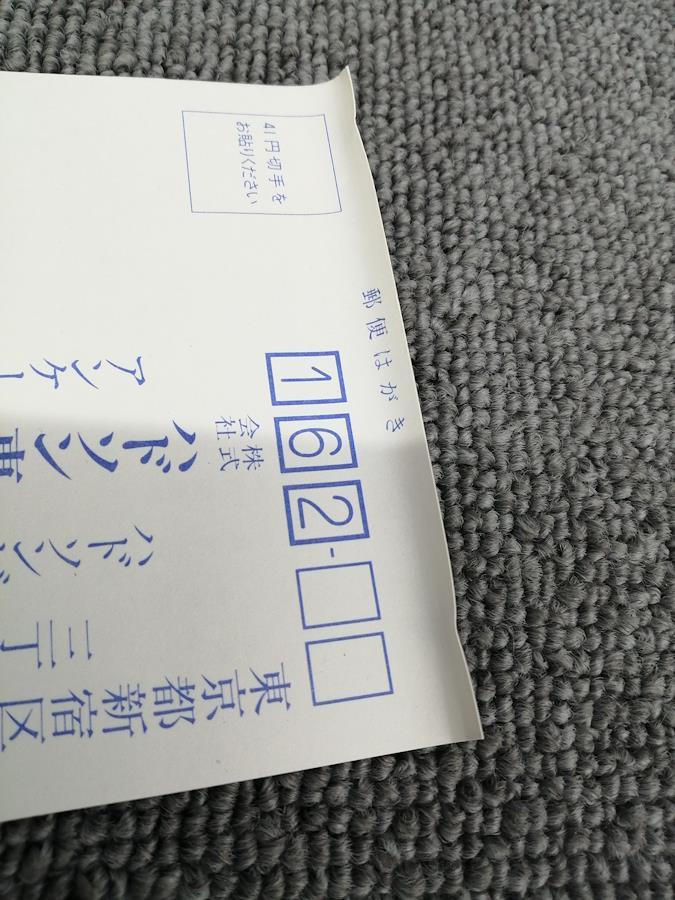 郵便はがき
162-
41円切手を
お貼りください
東京都新宿区
三丁
ハドソンビ
株式会社
ハドソン東
アンケー